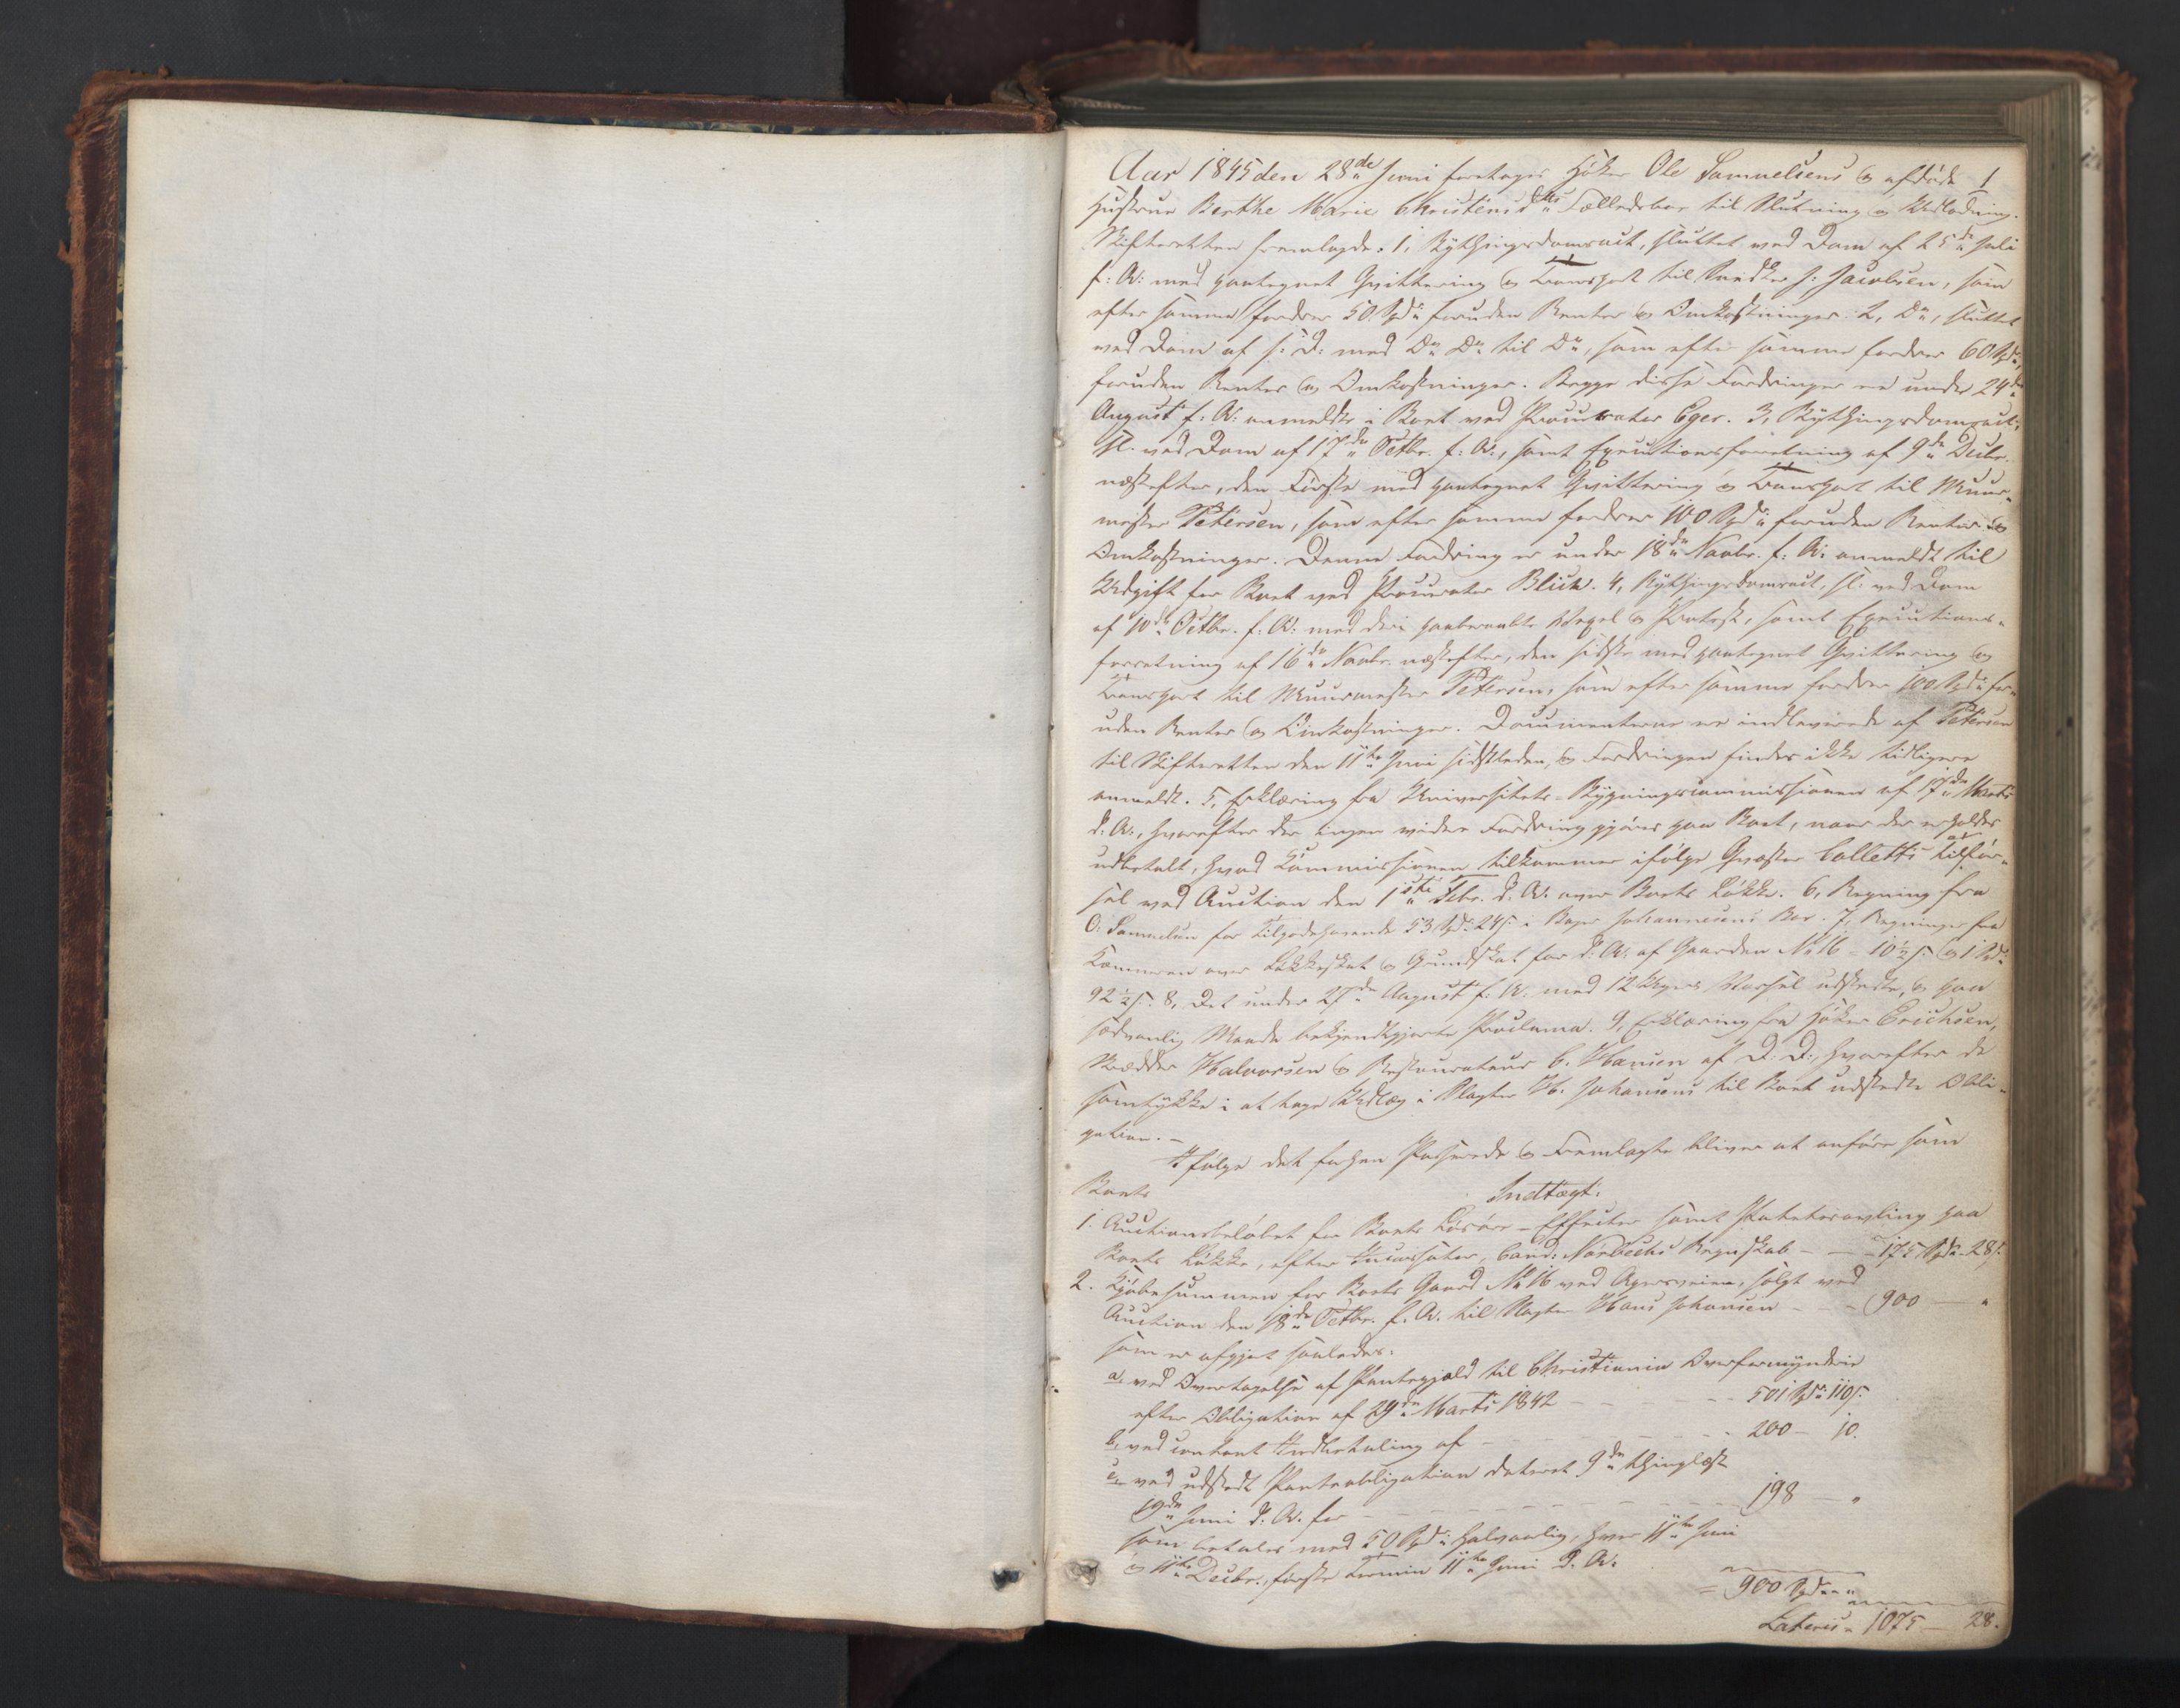 1
Aar 1845 den 28de Juni foretoges Høker Ole Samuelsens og afdøde
Hustrue Berthe Marie Christensdtrs Fællesboe til Slutning og Udlodning.
Skifteretten fremlagde: 1, Bythingsdomsact, sluttet ved Dom af 25de Juli
f: A: med paategnet Qvittering og Transport til J: Jacobsen, som
efter samme fordrer 50 Spd. foruden Renter og Omkostninger. 2, Do, sluttet
ved Dom af s: D: med Do Do til Do, som efter samme fordrer 60 Spd.,
foruden Renter og Omkostninger. Begge disse Fordringer ere under 24de
August f: A: anmeldte i Boet ved Procurator Eger. 3, Bythingsdomsact,
sl. ved Dom af 17de Octbr. f: A:, samt Executionsforretning af 9de Decbr.
næstefter, den Første med paategnet Qvittering og Transport til Muur-
mester Petersen, som efter samme fordrer 100 Spd. foruden Renter og
Omkostninger. Denne Fordring er under 18de Novbr. f: A: anmeldt til
Udgift for Boet ved Procurator Blich. 4, Bythingsdomsact, sl. ved Dom
af 10de Octbr. f: A: med deri paaberaabte Vexel og Protest, samt Executions-
forretning af 16de Novbr. næstefter, den sidste med paategnet Qvittering og
Transport til Muurmester Petersen, som efter samme fordrer 100 Spd. for-
uden Renter og Omkostninger. Documenterne ere indleverede af Petersen
til Skifteretten den 11te Juni sidstleden, og Fordringen findes ikke tidligere
anmeldt. 5, Erklæring fra Universitets-Bygningscommissionen af 17de Marts
d: A:, hvorefter der ingen videre Fordring gjøres paa Boet, naar der erholdes
udbetalt, hvad Commissionen tilkommer ifølge Qvæstor Colletts Tilfør-
sel ved Auction den 1ste Febr. d: A: over Boets Løkke. 6, Regning fra
O: Samuelsen for Tilgodehavende 53 Spd. 24 s. i Johannesens Boe. 7, Regninger fra
Kæmneren over Løkkeskat og Grundskat for d: A: af Gaarden No 16 = 10½ s. og 1 Spd.
92½ s. 8, Det under 27de August f: A: med 12 Ugers Varsel udstedte, og paa
sædvanlig Maade bekjendtgjorte Proclama. 9, Erklæring fra Høker Erichsen,
Skrædder Halvorsen og Restaurateur C. Hansen af D: D:, hvorefter de
samtykke i at tage Udlæg i Slagter H. Johansens til Boet udstedte Obli-
gation.-
Ifølge det saaledes Passerede og Fremlagte bliver at anføre som
Boets Indtægt:
1. Auctionsbeløbet for Boets Løsøre-Effecter samt Potetesavling paa
Boets Løkke, efter Incassator, Cand: Norbechs Regnskab - - - 175 Spd. 28 s.
2. Kjøbesummen for Boets Gaard No 16 ved Agersveien, solgt ved
Auction den 18de Octbr. f. A. til Slagter Hans Johansen - - 900 — "
som er afgjort saaledes:
a, ved Overtagelse af Pantegjæld til Christiania Overformynderie
efter Obligation af 29de Marts 1842 - - - - 501 Spd. 110 s.
b, ved contant Indbetaling af - - - - 200 — 10.
c, ved udstedt Panteobligation dateret 9de thinglæst
19de Juni d: A. for - - - - 198 — "
som betales med 50 Spd. halvaarlig, hver 11te Juni
og 11te Decbr., første Termin 11te Juni d. A.
= 900 Spd. "
Lateris - 1075 — 28.